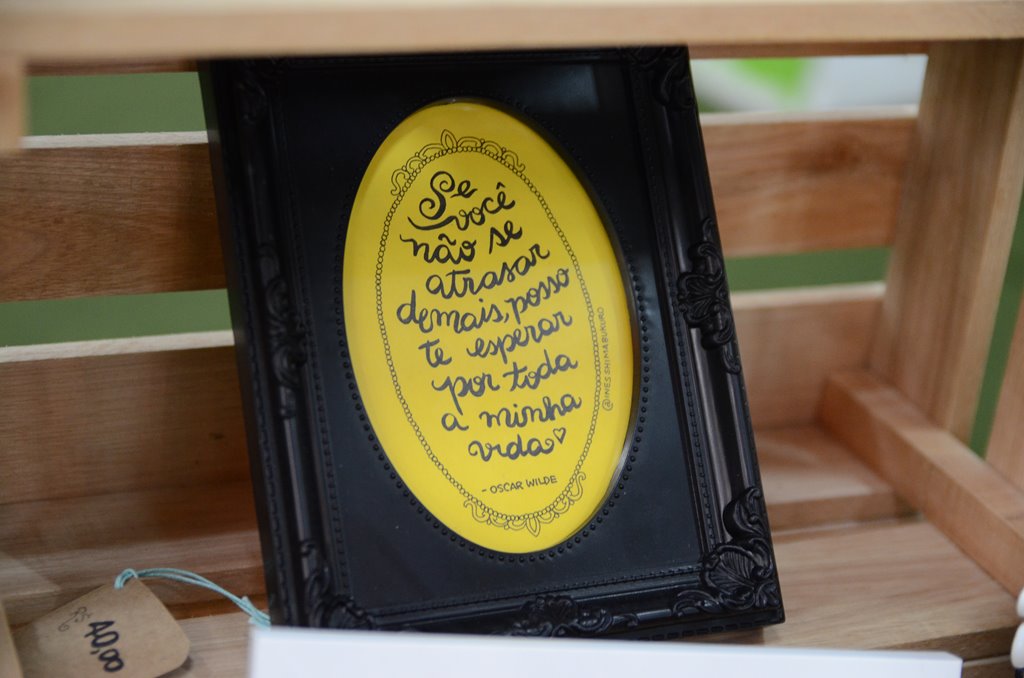 Se
você
não se
atrasar
demais, posso
te esperar
por toda
a minha
vda♡
- OSCAR WILDE
@INESSHIMABUKURO
R$
40,00